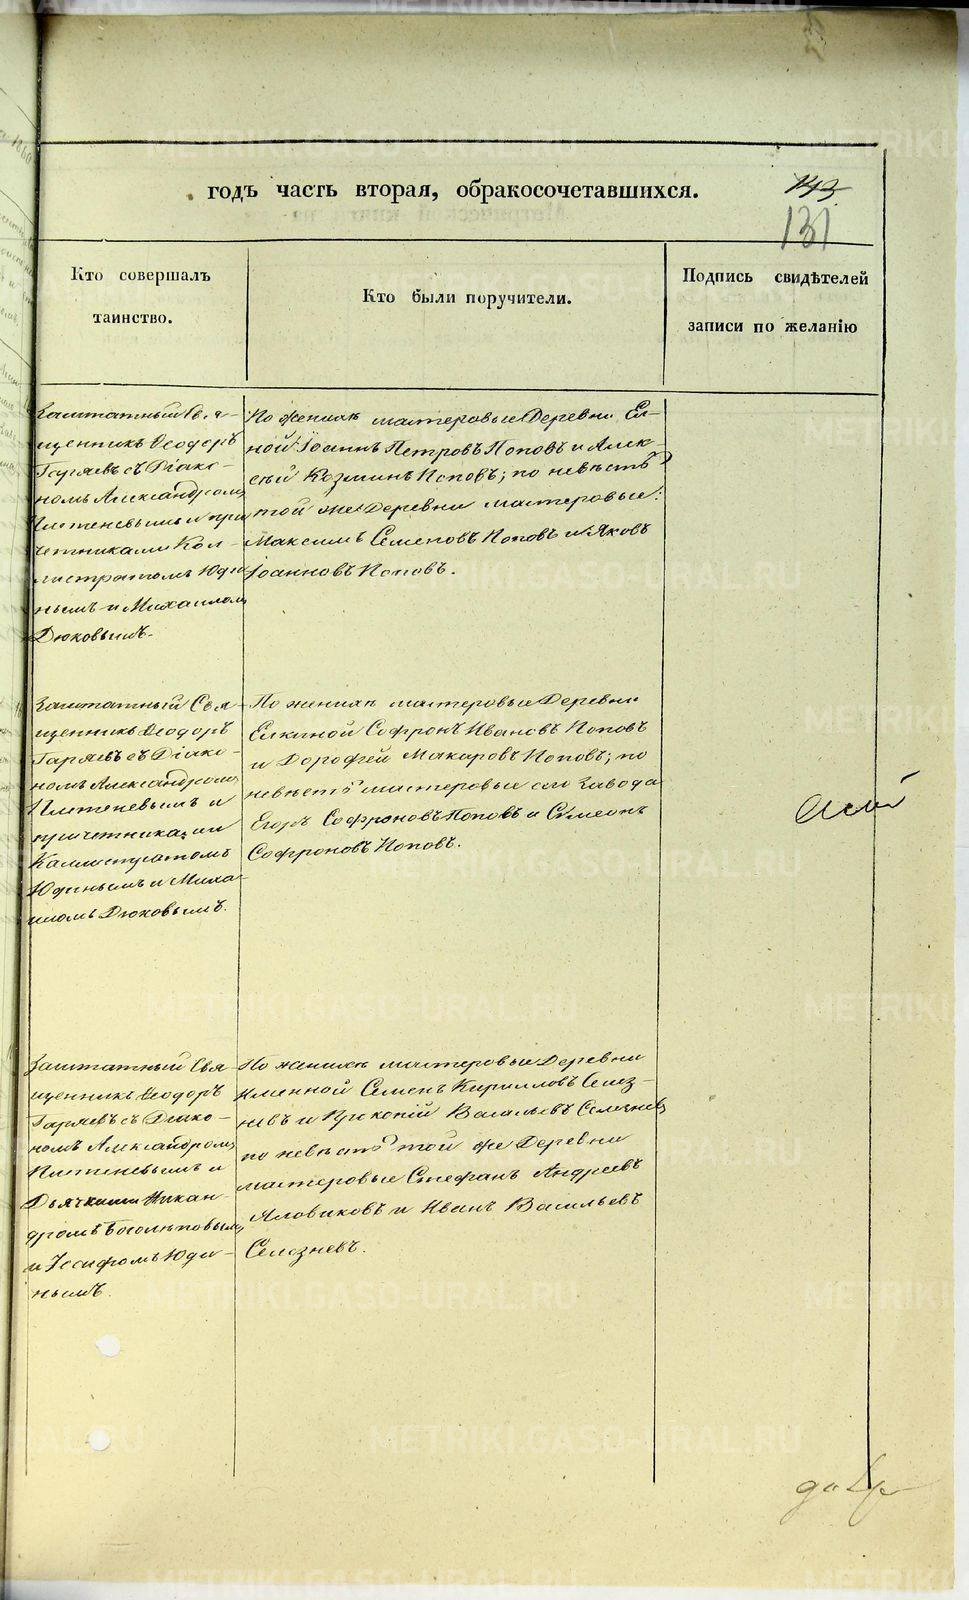 годъ часть вторая, обракосочетавшихся.
143
131
Кто совершалъ
таинство.
Кто были поручители.
Подпись свидѣтелей
записи по желанію
Заштатный Свя-
щенникъ Ѳеодоръ
Гаряевъ съ Діако-
номъ Александромъ
Плетеневымъ и при
четниками Кал-
листратомъ Юди
нымъ и Михаиломъ
Дюковымъ.
По женихѣ мастеровые Деревни Ел-
ной Іоаннъ Петровъ Поповъ и Алек-
сѣй Козминъ Поповъ; по невѣстѣ
той же Деревни мастеровые:
Максимъ Семеновъ Поповъ и Яковъ
Іоанновъ Поповъ.
Заштатный Свя-
щенникъ Ѳеодоръ
Гаряевъ съ Діако-
номъ Александромъ
Плетеневымъ и
причетниками
Каллистратомъ
Юдинымъ и Миха-
иломъ Дюковымъ.
По женихѣ мастеровые Деревни
Елкиной Софронъ Ивановъ Поповъ
и Дорофей Макаровъ Поповъ; по
невѣстѣ мастеровые сего Завода
Егоръ Софроновъ Поповъ и Сѵмеонъ
Софроновъ Поповъ.
Заштатный Свя-
щенникъ Ѳеодоръ
Гаряевъ съ Діако-
номъ Александромъ
Плетеневымъ и
Дьячками Никан-
дромъ Боголѣповымъ
и Іосифомъ Юди-
нымъ.
По женихѣ мастеровые Деревни
Семенъ Кирилловъ Селез-
невъ и Прокопій Васильевъ Селезневъ
по невѣстѣ той же Деревни
мастеровые Стефанъ Андреевъ
Яловиковъ и Иванъ Васильевъ
Селезневъ.
METRIKI.GASO-URAL.RU